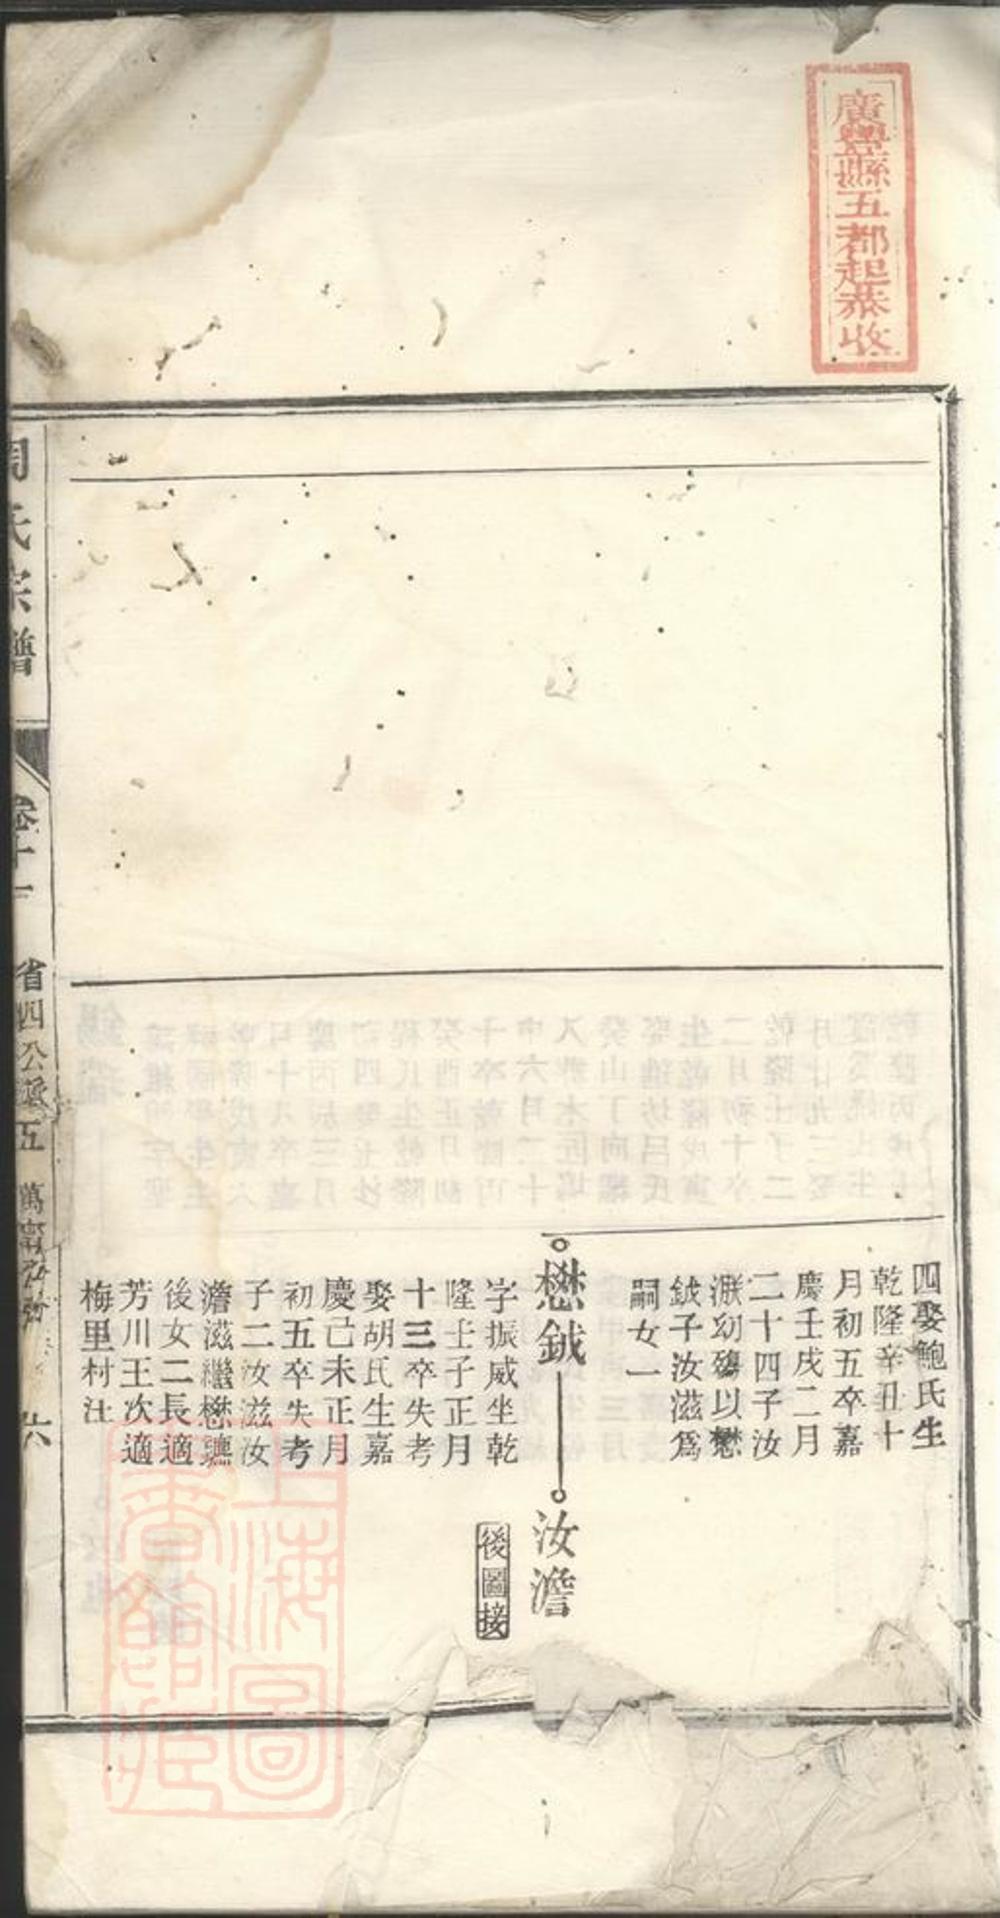 廣豐縣五都起恭收
四娶鮑氏生
乾隆辛丑十
月初五卒嘉
慶壬戌二月
二十四子汝
濒幼殤以懋
鉞子汝滋爲
嗣女一
懋鉞
汝澹
後圖接
字振威坐乾
隆壬子正月
十三卒失考
娶胡氏生嘉
慶己未正月
初五卒失考
子二汝滋汝
澹滋繼懋
後女二長適
芳川王次適
梅里村汪
周氏宗譜
卷十一
省四公
五
萬甯
共
上海圖書館藏